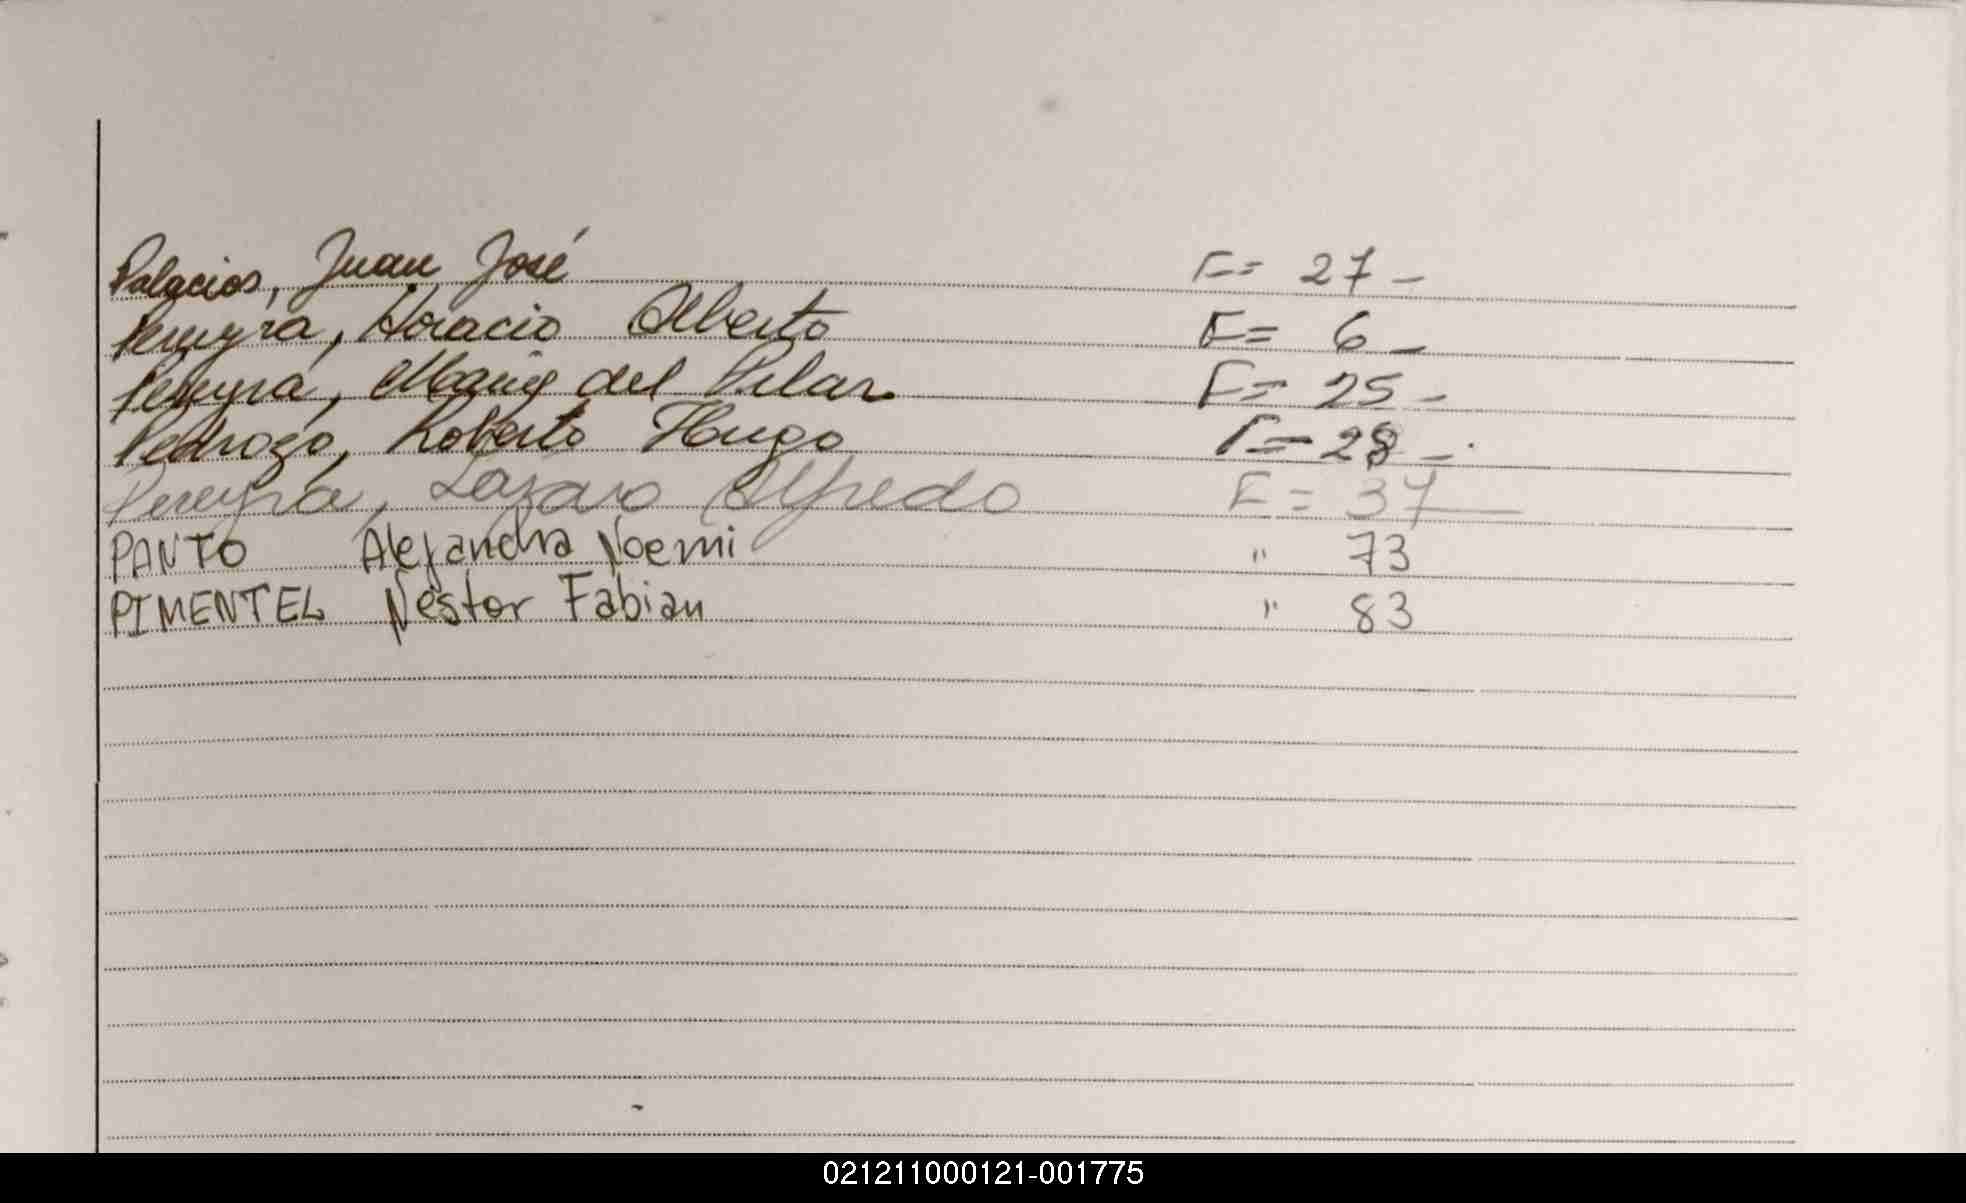 Palacios, Juan José F= 27-
Pereyra, Horacio Alberto F= 6-
Pereyra, Maria del Pilar F= 25-
Pedrozo, Roberto Hugo F= 28-.
Pereyra, Lazaro Alfredo F= 37-
PANTO Alejandra Noemi " 73
PIMENTEL Néstor Fabian " 83
021211000121-001775